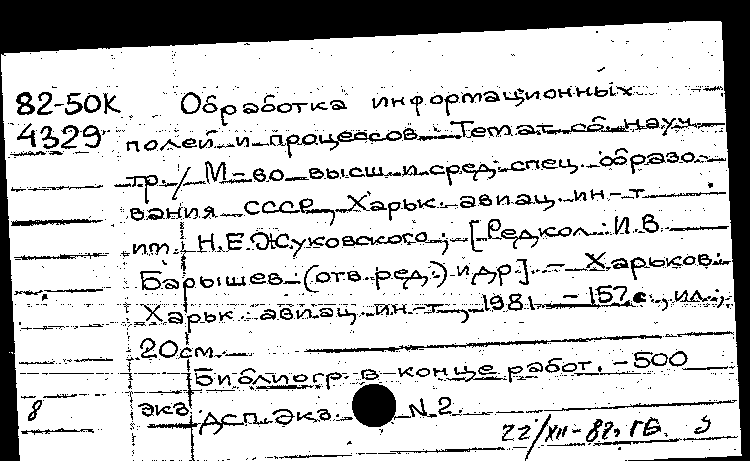 82-50К Обработка информационных
4329 полей и процессов: Темат. сб. науч.
тр. / М-во высш. и сред. спец. образо-
вания СССР, Харьк. авиац. ин-т
им. Н.Е.Жуковского; [Редкол.: И.В.
Барышев (отв. ред.) и др.] - Харьков:
Харьк. авиац. ин-т, 1981. - 157 с., ил.;
20 см.
Библиогр. в конце работ. - 500
8 экз. ДСП. Экз. N 2.
22/XII-82г. ГБ.